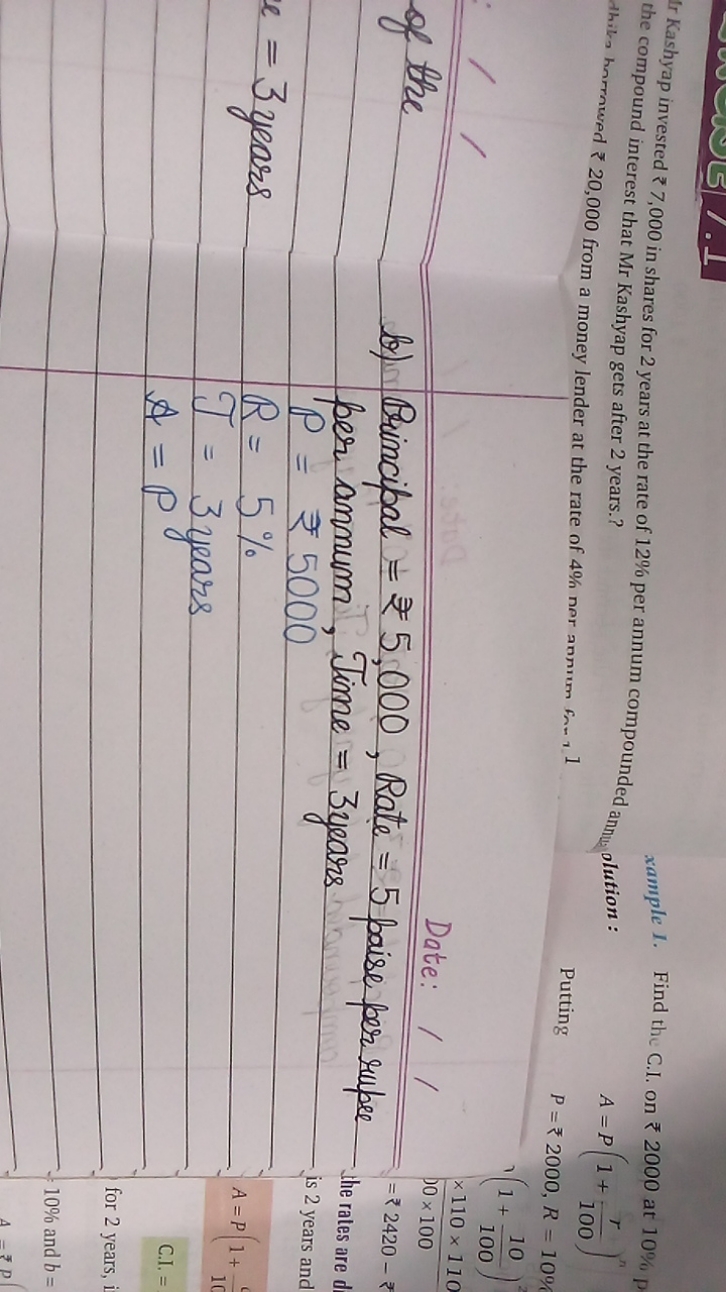 7.1
Mr Kashyap invested ₹ 7,000 in shares for 2 years at the rate of 12% per annum compounded
the compound interest that Mr Kashyap gets after 2 years.?
borrowed ₹ 20,000 from a money lender at the rate of 4% per annum for
Example 1. Find the C.I. on ₹ 2000 at 10%
olution :
A = P(1 + r/100)^n
Putting P = ₹ 2000, R = 10%
(1 + 10/100)^2
×110 × 110
00 × 100
= ₹ 2420 – ₹
the rates are
is 2 years and
A = P(1+
C.I. =
for 2 years, i
10% and b =
A = ₹ P(
/ /
of the
= 3 years
Date: / /
b) Principal = ₹ 5,000, Rate = 5 paise per rupee
per annum, Time = 3 years
P = ₹ 5000
R = 5%
T = 3 years
A = P